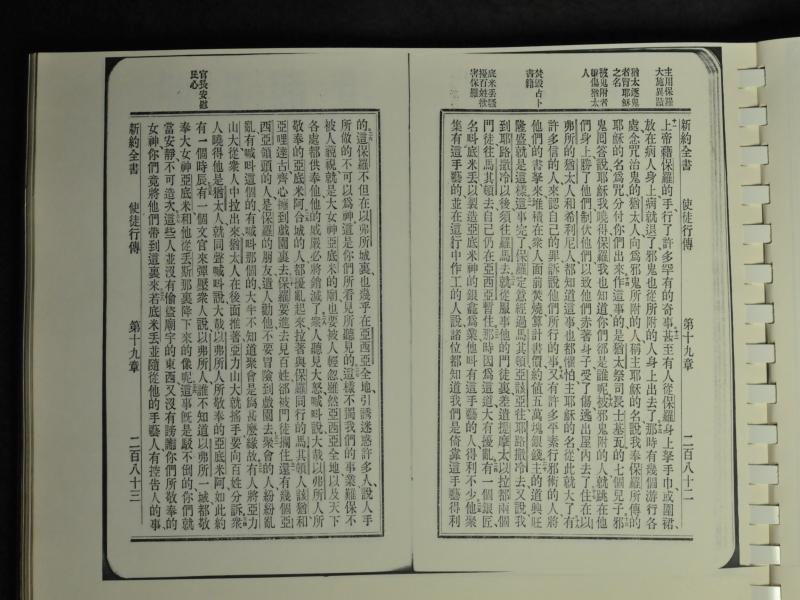 主用保羅
大施異蹟
猶太逐鬼
者冒耶穌
之名
被鬼附者
毆傷猶太
人
焚毀占卜
書籍
底米丟騷
擾百姓欲
害保羅
新約全書　使徒行傳　第十九章　二百八十二
上帝藉保羅的手行了許多罕有的奇事甚至有人從保羅身上拏手巾或圍裙
放在病人身上病就退了邪鬼也從所附的人身上出去了那時有幾個游行各
處念咒治鬼的猶太人向爲邪鬼所附的人稱主耶穌的名說我奉保羅所傳的
耶穌的名爲咒分付你們出來作這事的是猶太祭司長士基瓦的七個兒子邪
鬼囘答說耶穌我曉得保羅我也知道你們都是誰呢被邪鬼附的人就跳在他
們身上勝了他們制伏他們以致他們赤著身子受了傷逃出屋內去了住在以
弗所的猶太人和希利尼人都知道這事也都懼怕主耶穌的名從此就大了有
許多信的人來認自己的罪訴說他們所行的事又有許多平素行邪術的人將
他們的書拏來堆積在衆人面前焚燒算計書價約值五萬塊銀錢主的道興旺
隆盛就是這樣這事完了保羅定意經過馬其頓亞該亞往耶路撒冷去又說我
到耶路撒冷以後須往羅馬去就從服事他的門徒裏差遣提摩太以拉都兩個
門徒往馬其頓去自己仍在亞西亞暫住那時因爲這道大有擾亂有一個銀匠
名叫底米丟以製造亞底米神的銀龕爲業他叫有這手藝的人得利不少他聚
集有這手藝的並在這行中作工的人說諸位都知道我們是倚靠這手藝得利
官長安慰
民心
的這保羅不但在以弗所城裏也幾乎在亞西亞全地引誘迷惑許多人說人手
所做的不可以爲神這是你們所看見所聽見的這樣不獨我們的事業難保不
被人藐視就是大女神亞底米的廟也要被人輕忽雖然亞西亞全地以及天下
各處都供奉他他的威嚴必將銷滅了衆人聽見大怒喊叫說大哉以弗所人所
敬奉的亞底米阿合城的人都擾亂起來拉著與保羅同行的馬其頓人該猶和
亞哩達古齊心擁到戲園裏去保羅要進去見百姓卻被門徒攔住還有幾個亞
西亞領頭的人是保羅的朋友遣人勸他不要冒險到戲園去衆會的人紛紛亂
亂有喊叫這個的有喊叫那個的大半不知道衆會是爲甚麽緣故有人將亞力
山大從衆人中拉出來猶太人在後面推著亞力山大就搖手要向百姓分訴衆
人曉得他是猶太人就同聲喊叫說大哉以弗所人所敬奉的亞底米阿如此約
有一個時辰有一個文官來彈壓衆人說以弗所人誰不知道以弗所一城都敬
奉大女神亞底米和他從丟斯那裏降下來的像呢這事旣是駁不倒的你們就
當安靜不可造次這些人並沒有偷盜廟宇的東西又沒有謗讟你們所敬奉的
女神你們竟將他們帶到這裏來若底米丟並隨從他的手藝人有控告人的事
新約全書　使徒行傳　第十九章　二百八十三